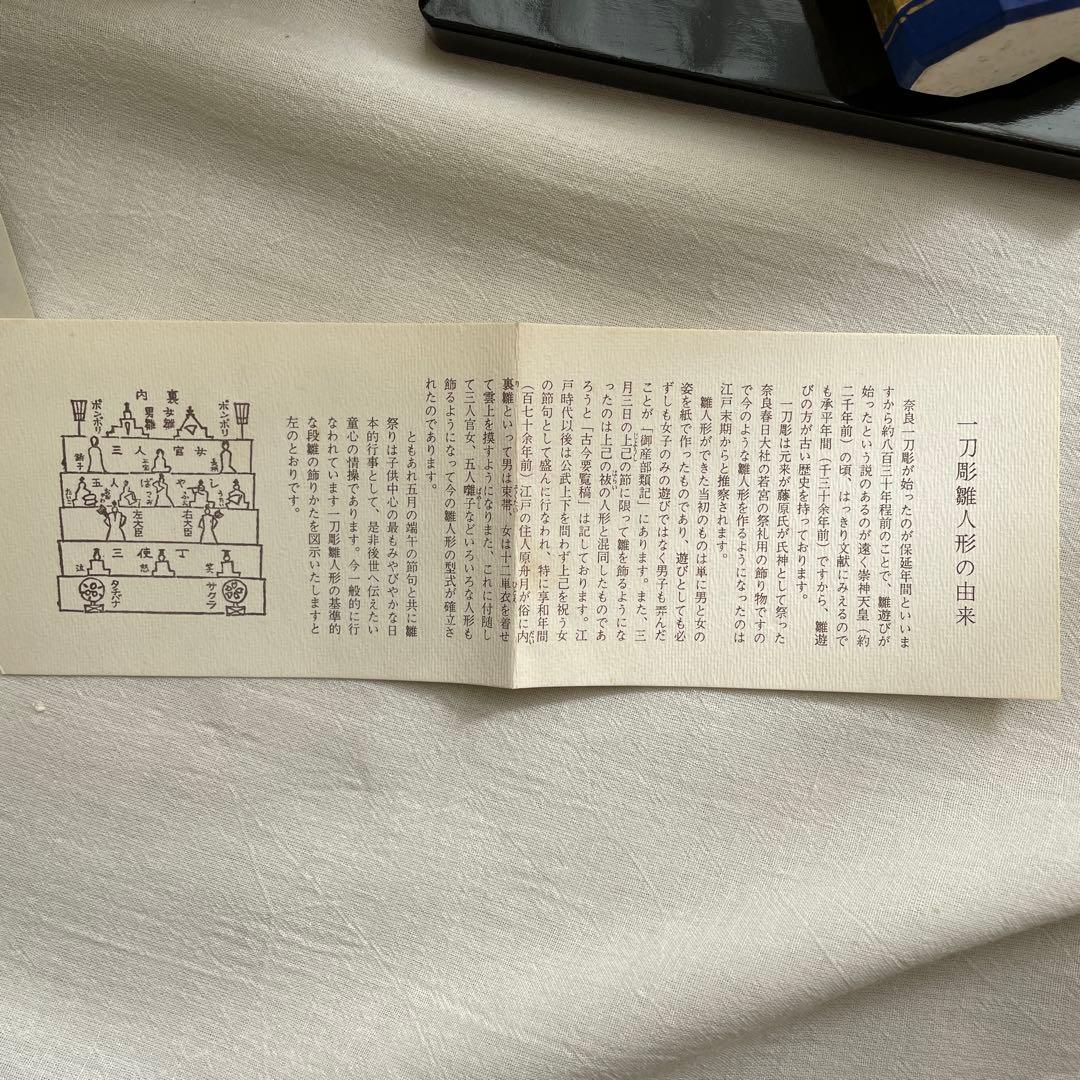 一刀彫雛人形の由来
奈良一刀彫が始ったのが保延年間といいま
すから約八百三十年程前のことで、雛遊びが
始ったという説のあるのが遠く崇神天皇（約
二千年前）の頃、はっきり文献にみえるので
も承平年間（千三十余年前）ですから、雛遊
びの方が古い歴史を持っております。
一刀彫は元来が藤原氏が氏神として祭った
奈良春日大社の若宮の祭礼用の飾り物ですの
で今のような雛人形を作るようになったのは
江戸末期からと推察されます。
雛人形ができた当初のものは単に男と女の
姿を紙で作ったものであり、遊びとしても必
ずしも女子のみの遊びではなく男子も弄んだ
ことが「御産部類記」にあります。また、三
月三日の上己の節に限って雛を飾るようにな
ったのは上己の祓の人形と混同したものであ
ろうと「古今要覧稿」は記しております。江
戸時代以後は公武上下を問わず上己を祝う女
の節句として盛んに行なわれ、特に享和年間
（百七十余年前）江戸の住人原舟月が俗に内
裏雛といって男は束帯、女は十二単衣を着せ
て雲上を摸すようになりまた、これに付随し
て三人官女、五人囃子などいろいろな人形も
飾るようになって今の雛人形の型式が確立さ
れたのであります。
ともあれ五月の端午の節句と共に雛
祭りは子供中心の最もみやびやかな日
本的行事として、是非後世へ伝えたい
童心の情操であります。今一般的に行
なわれています一刀彫雛人形の基準的
な段雛の飾りかたを図示いたしますと
左のとおりです。
内裏
ボンボリ
男雛
女雛
ボンボリ
三人官女
五人ばやし
左大臣
右大臣
三使丁
泣
怒
笑
タチバナ
サクラ